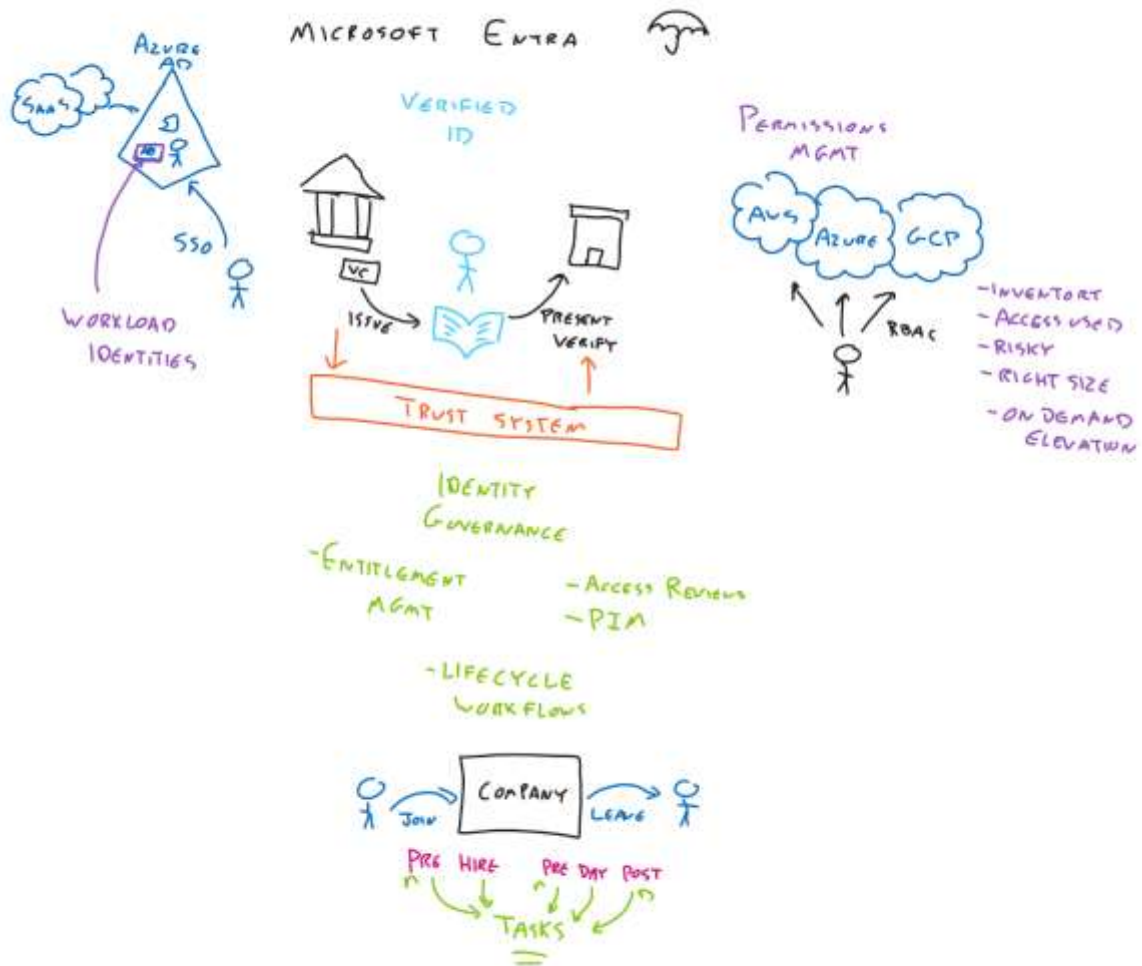 MICROSOFT ENTRA
AZURE
AD
SAAS
AB
SSO
WORKLOAD
IDENTITIES
VERIFIED
ID
VC
ISSUE
PRESENT
VERIFY
TRUST SYSTEM
PERMISSIONS
MGMT
AWS
AZURE
GCP
RBAC
-INVENTORY
-ACCESS USED
-RISKY
-RIGHT SIZE
-ON DEMAND
ELEVATION
IDENTITY
GOVERNANCE
-ENTITLEMENT
MGMT
-ACCESS REVIEWS
-PIM
-LIFECYCLE
WORKFLOWS
COMPANY
JOIN
LEAVE
PRE HIRE
PRE DAY POST
TASKS